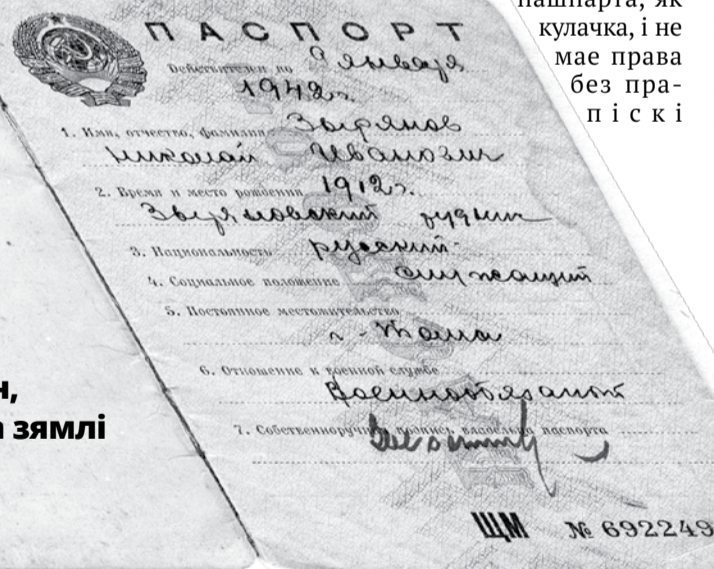 пашпарта, як
кулачка, і не
мае права
без пра-
піскі
н,
зямлі
ПАСПОРТ
Действителен по 9 января
1942 г.
1. Имя, отчество, фамилия Зырянов
Николай Иванович
2. Время и место рождения 1912 г.
Зыряновский рудник
3. Национальность русский
4. Социальное положение служащий
5. Постоянное местожительство
г.
6. Отношение к военной службе
Военнообязаный
7. Собственноручная подпись владельца паспорта
ЩМ № 692249